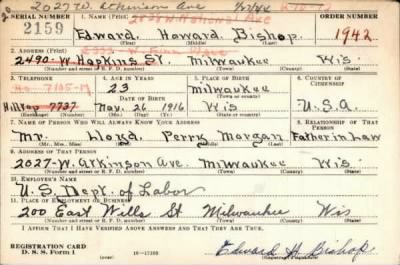 2027 W. Atkinson Ave
SERIAL NUMBER 1. NAME (Print) 2538 W National Ave ORDER NUMBER
2159 Edward Howard Bishop 1942
(First) (Middle) (Last)
2. ADDRESS (Print)
2490 W Hopkins St. Milwaukee Wis
(Number and street or R. F. D. number) (Town) (County) (State)
3. TELEPHONE 4. AGE IN YEARS 5. PLACE OF BIRTH 6. COUNTRY OF CITIZENSHIP
23 Milwaukee
(Town or county)
DATE OF BIRTH
Hilltop 7737 May 26 1916 Wis U.S.A.
(Exchange) (Number) (Mo.) (Day) (Yr.) (State or country)
7. NAME OF PERSON WHO WILL ALWAYS KNOW YOUR ADDRESS 8. RELATIONSHIP OF THAT PERSON
Mr. Lloyd Perry Morgan Father in Law
(Mr., Mrs., Miss) (First) (Middle) (Last)
9. ADDRESS OF THAT PERSON
2027-W. Atkinson Ave. Milwaukee Wis
(Number and street or R. F. D. number) (Town) (County) (State)
10. EMPLOYER'S NAME
U.S. Dept. of Labor
11. PLACE OF EMPLOYMENT OR BUSINESS
200 East Wills St Milwaukee Wis
(Number and street or R. F. D. number) (Town) (County) (State)
I AFFIRM THAT I HAVE VERIFIED ABOVE ANSWERS AND THAT THEY ARE TRUE.
REGISTRATION CARD
D. S. S. Form 1 (over) 16—17105 Edward H Bishop
(Registrant's signature)